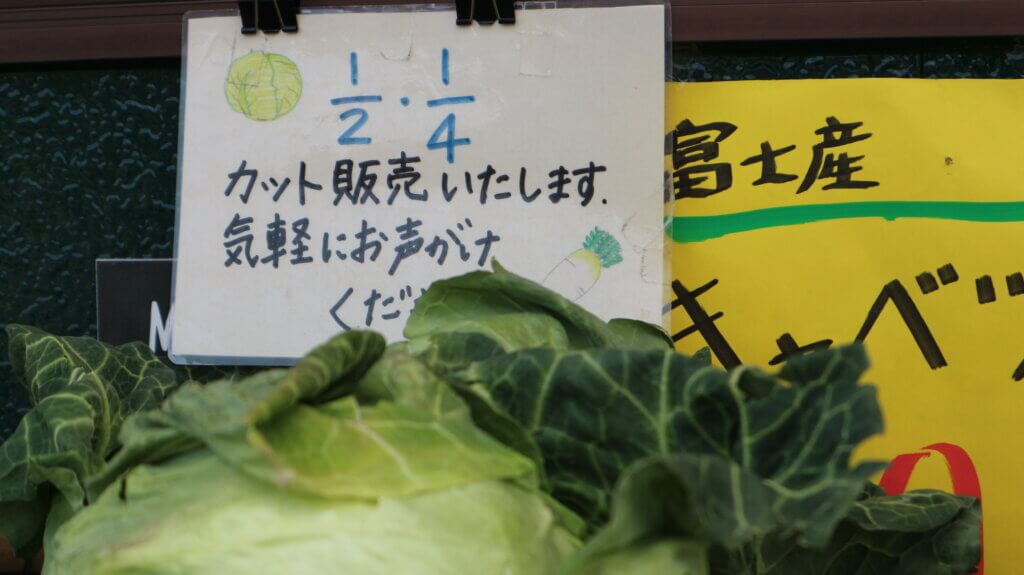 1/2・1/4
カット販売いたします.
気軽にお声がけ
くださ
富士産
キャベ
M